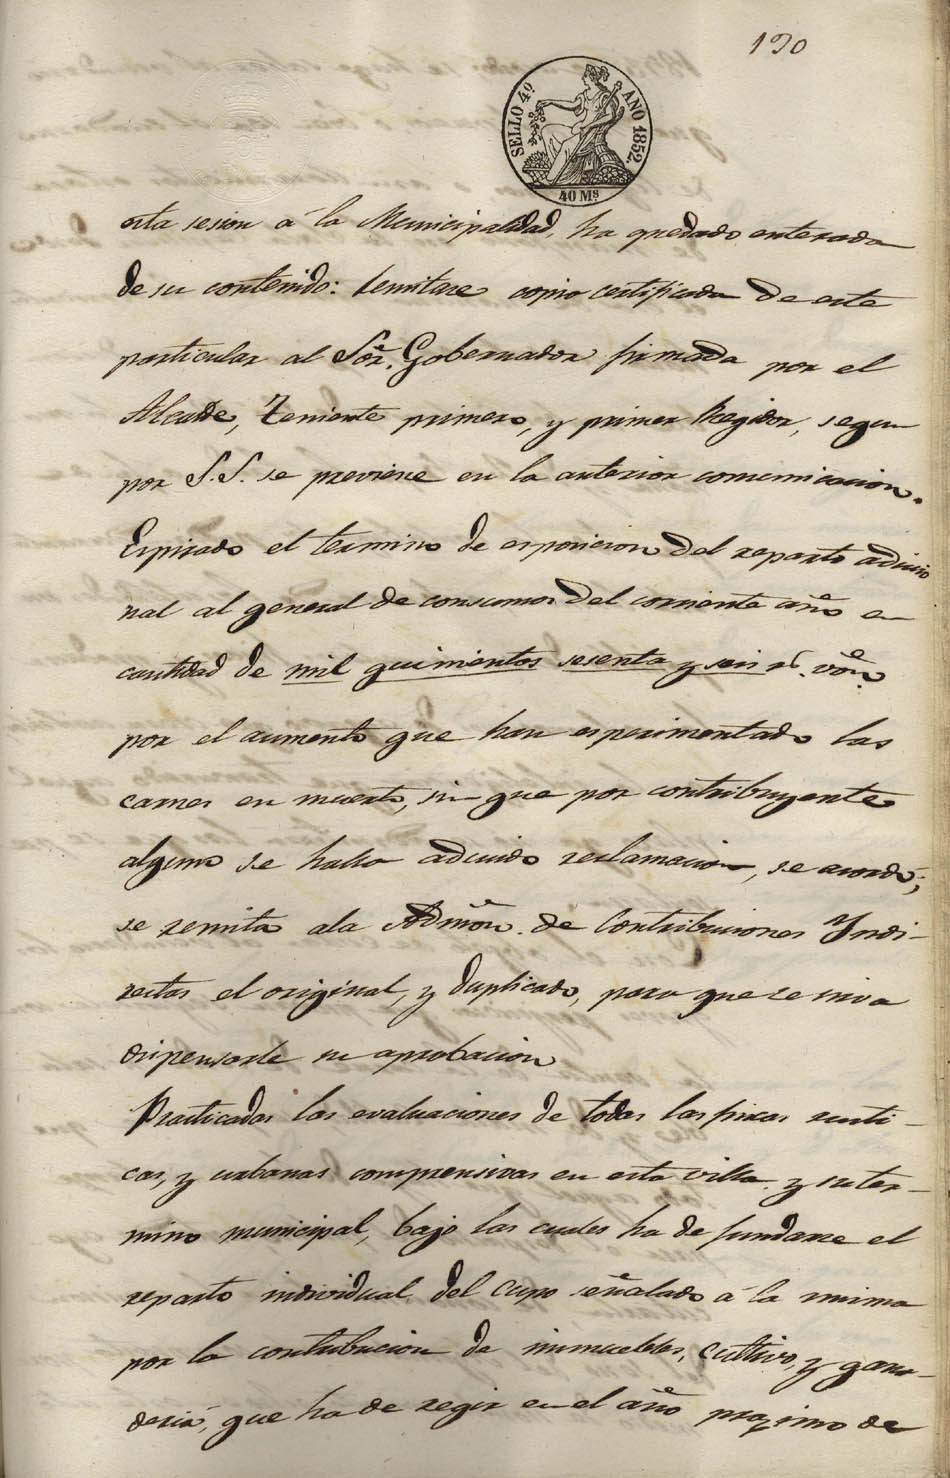 190
SELLO 4º AÑO 1852.
40 Mˢ
esta sesion á la Municipalidad, ha quedado enterada
de su contenido: Remitase copia certificada de este
particular al Sôr. Gobernador firmada por el
Alcalde, Teniente primero, y primer Regidor, segun
por S.S. se previene en la anterior comunicacion.
Espirado el termino de esposicion del reparto adicio
nal al general de consumos del corriente año en
cantidad de mil quinientos sesenta y seis rˢ. von.
por el aumento que han esperimentado las
carnes en muerto, sin que por contribuyente
alguno se halla aducido reclamacion, se acordó;
se remita ala Admôn. de Contribuciones Yndi-
rectas el original, y duplicado, para que se sirva
dispensarle su aprobacion
Practicadas las evaluaciones de todas las fincas rusti-
cas, y urbanas comprensivas en esta villa y su ter-
mino municipal, bajo las cuales ha de fundarse el
reparto individual del cupo señalado á la misma
por la contribucion de inmuebles, cultivo, y gana-
deria, que ha de regir en el año proximo de